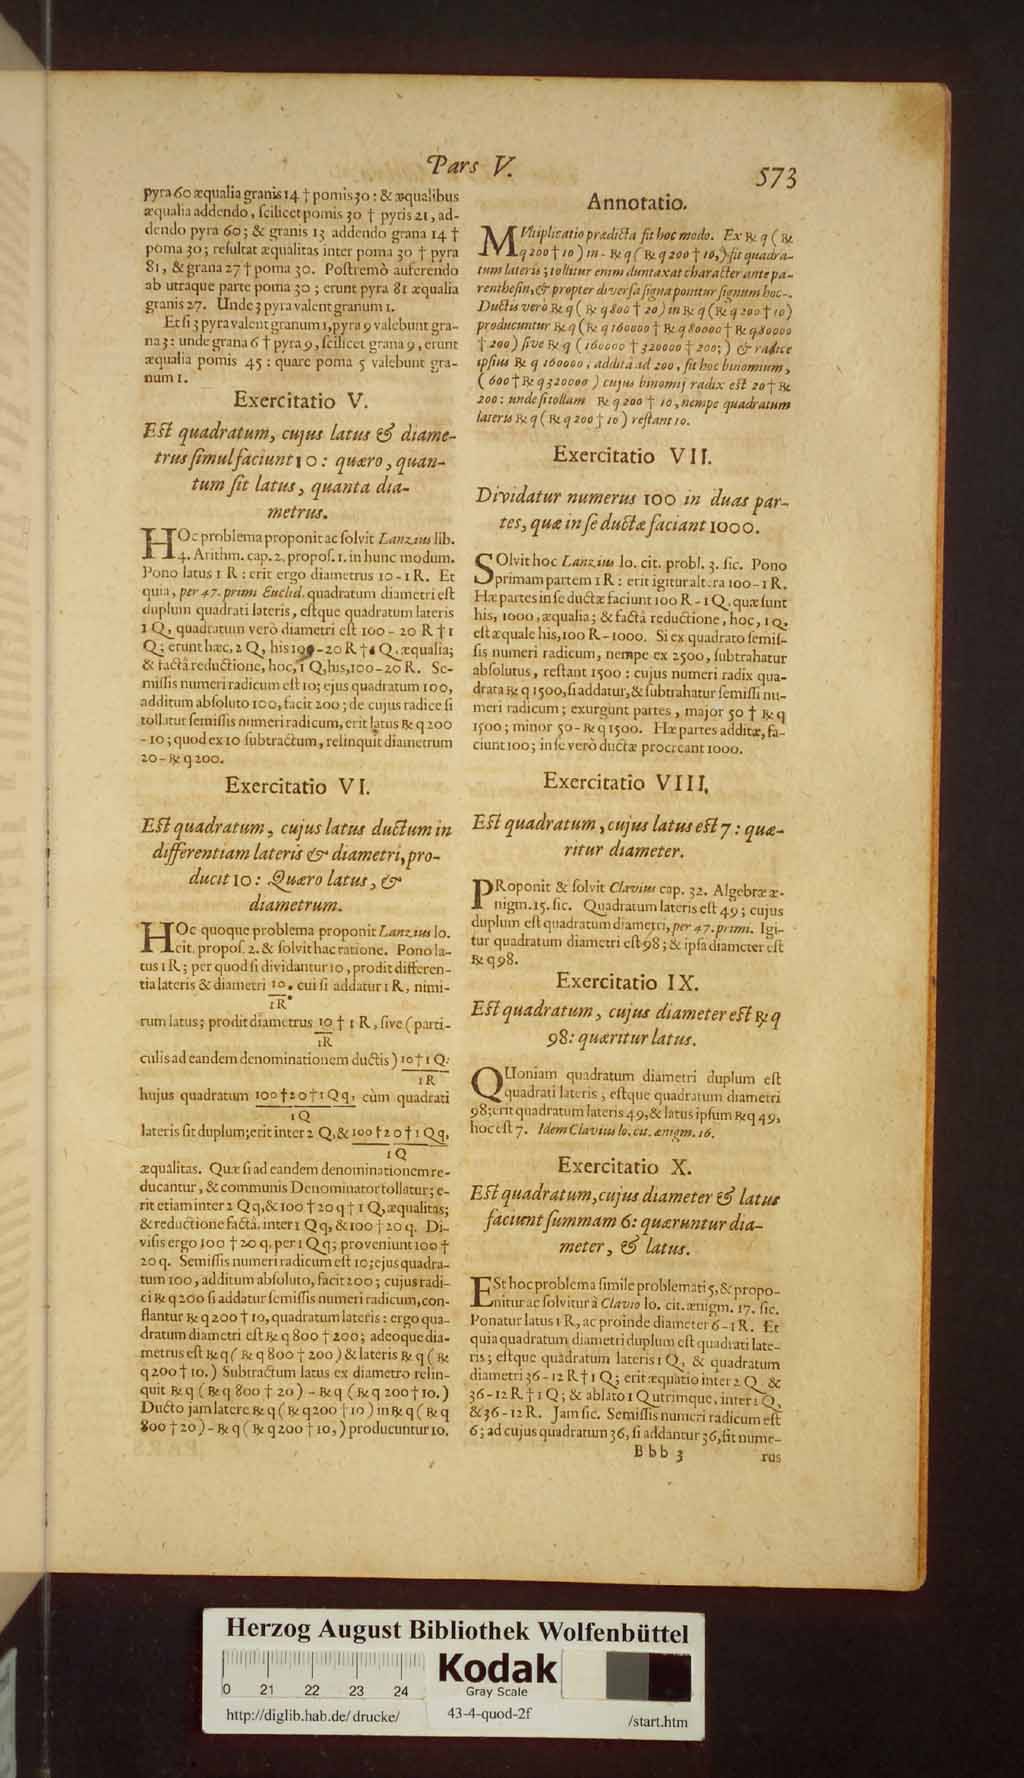 Pars V.
573
pyra 60 æqualia granis 14 † pomis 30 : & æqualibus
æqualia addendo, scilicet pomis 30 † pyris 21, ad-
dendo pyra 60; & granis 13 addendo grana 14 †
poma 30; resultat æqualitas inter poma 30 † pyra
81, & grana 27 † poma 30. Postremò auferendo
ab utraque parte poma 30; erunt pyra 81 æqualia
granis 27. Unde 3 pyra valent granum 1.
Et si 3 pyra valent granum 1, pyra 9 valebunt gra-
na 3: unde grana 6 † pyra 9, scilicet grana 9, erunt
æqualia pomis 45: quare poma 5 valebunt gra-
num 1.
Exercitatio V.
Est quadratum, cujus latus & diame-
trus simul faciunt 10: quæro, quan-
tum sit latus, quanta dia-
metrus.
HOc problema proponit ac solvit Lanzius lib.
4. Arithm. cap. 2. propos. 1. in hunc modum.
Pono latus 1 R : erit ergo diametrus 10 - 1 R. Et
quia, per 47. primi Euclid. quadratum diametri est
duplum quadrati lateris, estque quadratum lateris
1 Q, quadratum verò diametri est 100 - 20 R † 1
Q; erunt hæc, 2 Q, his 100 - 20 R † 1 Q, æqualia;
& factâ reductione, hoc, 1 Q, his, 100 - 20 R. Se-
missis numeri radicum est 10; ejus quadratum 100,
additum absoluto 100, facit 200; de cujus radice si
tollatur semissis numeri radicum, erit latus ℞ q 200
- 10; quod ex 10 subtractum, relinquit diametrum
20 - ℞ q 200.
Exercitatio VI.
Est quadratum, cujus latus ductum in
differentiam lateris & diametri, pro-
ducit 10: Quæro latus, &
diametrum.
HOc quoque problema proponit Lanzius lo.
cit. propos. 2. & solvit hac ratione. Pono la-
tus 1 R; per quod si dividantur 10, prodit differen-
tia lateris & diametri 10. cui si addatur 1 R, nimi-
1R
rum latus; prodit diametrus 10 † 1 R, sive (parti-
1R
culis ad eandem denominationem ductis) 10 † 1 Q:
1R
hujus quadratum 100 † 20 † 1 Qq, cùm quadrati
1Q
lateris sit duplum; erit inter 2 Q, & 100 † 20 † 1 Qq,
1Q
æqualitas. Quæ si ad eandem denominationem re-
ducantur, & communis Denominator tollatur; e-
rit etiam inter 2 Qq, & 100 † 20 q † 1 Q, æqualitas;
& reductione factâ. inter 1 Qq, & 100 † 20 q. Di-
visis ergo 100 † 20 q. per 1 Qq; proveniunt 100 †
20 q. Semissis numeri radicum est 10; ejus quadra-
tum 100, additum absoluto, facit 200; cujus radi-
ci ℞ q 200 si addatur semissis numeri radicum, con-
flantur ℞ q 200 † 10, quadratum lateris: ergo qua-
dratum diametri est ℞ q 800 † 200; adeoque dia-
metrus est ℞ q ( ℞ q 800 † 200) & lateris ℞ q ( ℞
q 200 † 10.) Subtractum latus ex diametro relin-
quit ℞ q ( ℞ q 800 † 20) - ℞ q ( ℞ q 200 † 10.)
Ducto jam latere ℞ q ( ℞ q 200 † 10) in ℞ q ( ℞ q
800 † 20) - ℞ q ( ℞ q 200 † 10,) producuntur 10.
Annotatio.
MUltiplicatio prædicta fit hoc modo. Ex ℞ q ( ℞
q 200 † 10) in - ℞ q ( ℞ q 200 † 10,) fit quadra-
tum lateris; tollitur enim duntaxat character ante pa-
renthesin, & propter diversa signa ponitur signum hoc -.
Ductis verò ℞ q ( ℞ q 800 † 20) in ℞ q ( ℞ q 200 † 10)
producuntur ℞ q ( ℞ q 160000 † ℞ q 80000 † ℞ q 80000
† 200) sive ℞ q ( 160000 † 320000 † 200;) & radice
ipsius ℞ q 160000, additâ ad 200, fit hoc binomium,
( 600 † ℞ q 320000 ) cujus binomij radix est 20 † ℞
200: unde si tollam ℞ q 200 † 10, nempe quadratum
lateris ℞ q ( ℞ q 200 † 10) restant 10.
Exercitatio VII.
Dividatur numerus 100 in duas par-
tes, quæ in se ductæ faciant 1000.
SOlvit hoc Lanzius lo. cit. probl. 3. sic. Pono
primam partem 1 R: erit igitur altera 100 - 1 R.
Hæ partes in se ductæ faciunt 100 R - 1 Q. quæ sunt
his, 1000, æqualia; & factâ reductione, hoc, 1 Q,
est æquale his, 100 R - 1000. Si ex quadrato semis-
sis numeri radicum, nempe ex 2500, subtrahatur
absolutus, restant 1500: cujus numeri radix qua-
drata ℞ q 1500, si addatur, & subtrahatur semissi nu-
meri radicum; exurgunt partes, major 50 † ℞ q
1500; minor 50 - ℞ q 1500. Hæ partes additæ, fa-
ciunt 100; in se verò ductæ procreant 1000.
Exercitatio VIII,
Est quadratum, cujus latus est 7: quæ-
ritur diameter.
PRoponit & solvit Clavius cap. 32. Algebræ æ-
nigm. 15. sic. Quadratum lateris est 49; cujus
duplum est quadratum diametri, per 47. primi. Igi-
tur quadratum diametri est 98; & ipsa diameter est
℞ q 98.
Exercitatio IX.
Est quadratum, cujus diameter est ℞ q
98: quæritur latus.
QUoniam quadratum diametri duplum est
quadrati lateris, estque quadratum diametri
98; erit quadratum lateris 49, & latus ipsum ℞ q 49,
hoc est 7. Idem Clavius lo. cit. ænigm. 16.
Exercitatio X.
Est quadratum, cujus diameter & latus
faciunt summam 6: quæruntur dia-
meter, & latus.
ESt hoc problema simile problemati 5, & propo-
nitur ac solvitur à Clavio lo. cit. ænigm. 17. sic.
Ponatur latus 1 R, ac proinde diameter 6 - 1 R. Et
quia quadratum diametri duplum est quadrati late-
ris; estque quadratum lateris 1 Q, & quadratum
diametri 36 - 12 R † 1 Q; erit æquatio inter 2 Q &
36 - 12 R † 1 Q; & ablato 1 Q utrimque, inter 1 Q,
& 36 - 12 R. Jam sic. Semissis numeri radicum est
6; ad cujus quadratum 36, si addantur 36, fit nume-
Bbb 3
rus
Herzog August Bibliothek Wolfenbüttel
Kodak
Gray Scale
0 21 22 23 24
http://diglib.hab.de/drucke/ 43-4-quod-2f /start.htm